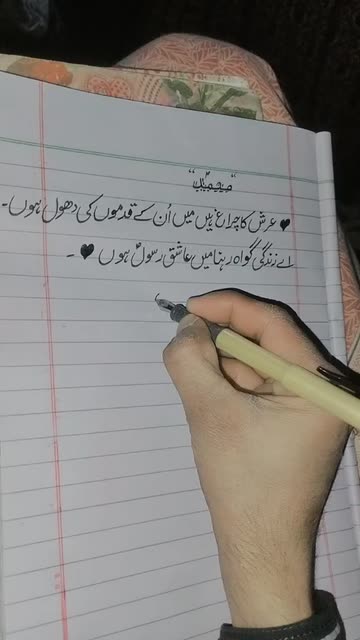 ♥ عرش کا چراغ ہیں میں اُن کے قدموں کی دھول ہوں۔
اے زندگی گواہ رہنا میں عاشق رسولؐ ہوں ♥ ۔